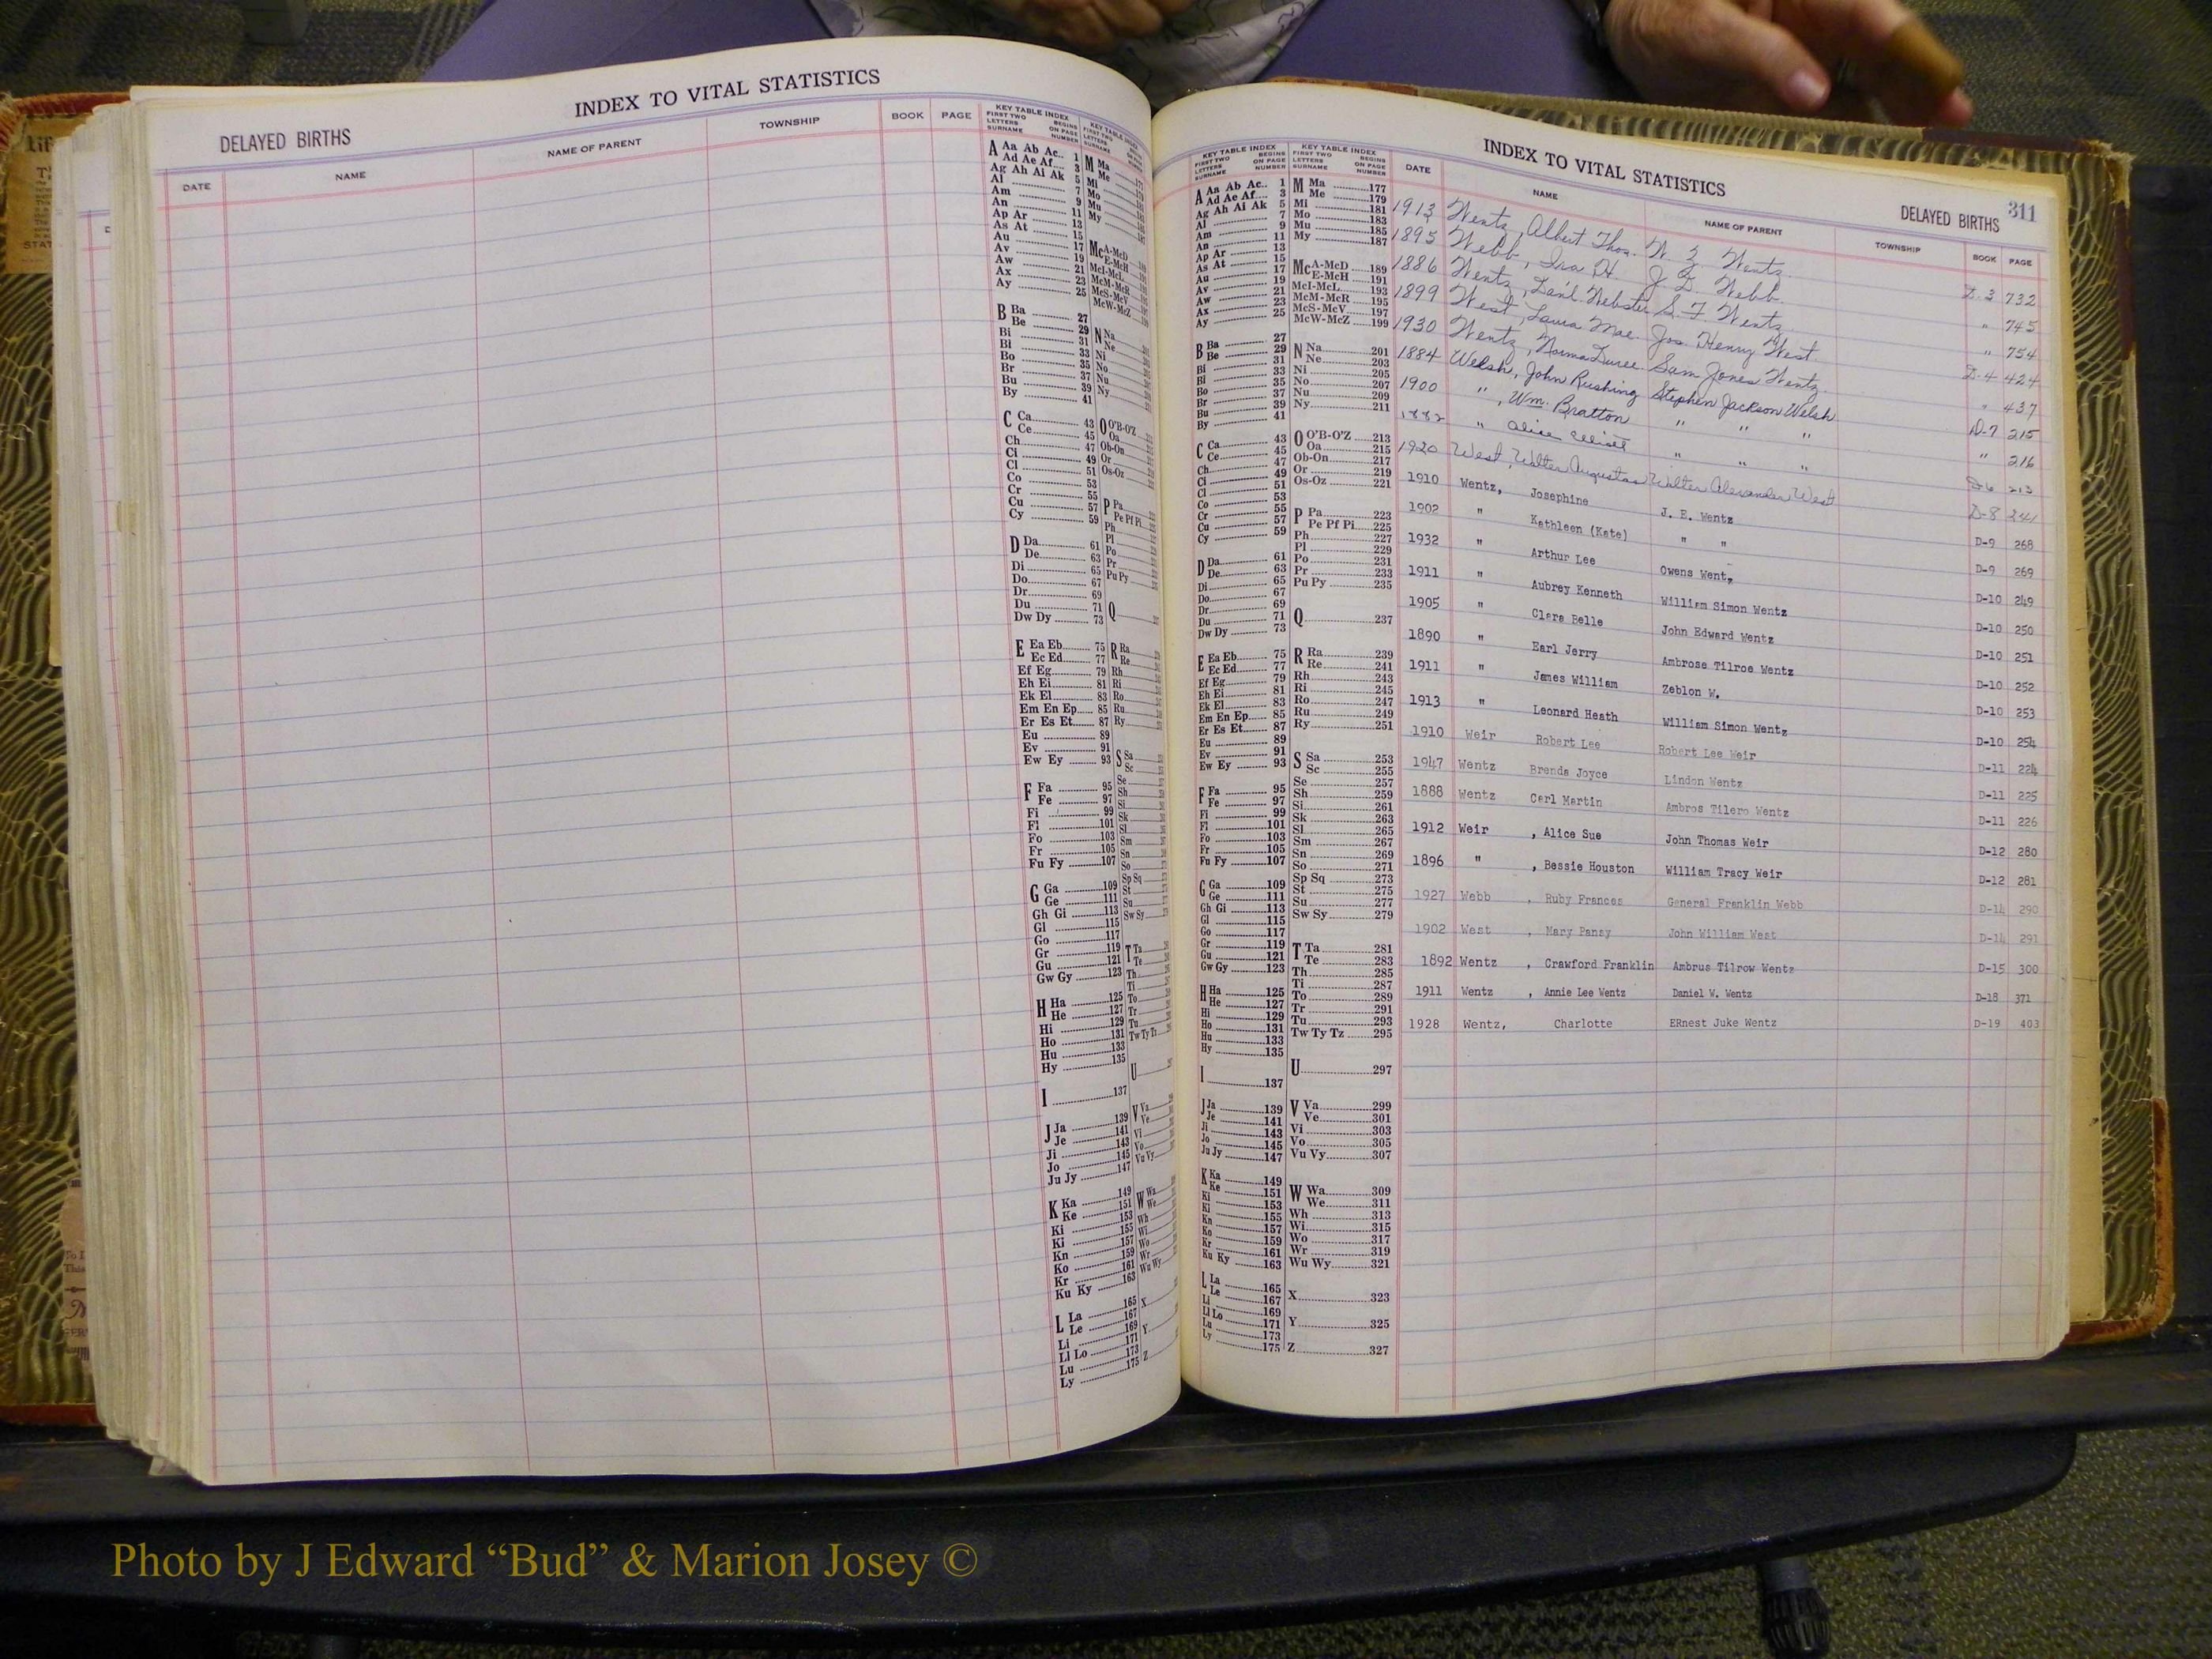 INDEX TO VITAL STATISTICS
DELAYED BIRTHS
DATE NAME NAME OF PARENT TOWNSHIP BOOK PAGE
KEY TABLE INDEX
FIRST TWO LETTERS SURNAME BEGINS ON PAGE NUMBER
A Aa Ab Ac 1
Ad Ae Af 3
Ag Ah Ai Ak 5
Al 7
Am 9
An 11
Ap Ar 13
As At 15
Au 17
Av 19
Aw 21
Ax 23
Ay 25
B Ba 27
Be 29
Bi 31
Bl 33
Bo 35
Br 37
Bu 39
By 41
C Ca 43
Ce 45
Ch 47
Ci 49
Cl 51
Co 53
Cr 55
Cu 57
Cy 59
D Da 61
De 63
Di 65
Do 67
Dr 69
Du 71
Dw Dy 73
E Ea Eb 75
Ec Ed 77
Ef Eg 79
Eh Ei 81
Ek El 83
Em En Ep 85
Er Es Et 87
Eu 89
Ev 91
Ew Ey 93
F Fa 95
Fe 97
Fi 99
Fl 101
Fo 103
Fr 105
Fu Fy 107
G Ga 109
Ge 111
Gh Gi 113
Gl 115
Go 117
Gr 119
Gu 121
Gw Gy 123
H Ha 125
He 127
Hi 129
Ho 131
Hu 133
Hy 135
I 137
J Ja 139
Je 141
Ji 143
Jo 145
Ju Jy 147
K Ka 149
Ke 151
Ki 153
Kl 155
Kn 157
Ko 159
Kr 161
Ku Ky 163
L La 165
Le 167
Li 169
Ll Lo 171
Lu 173
Ly 175
INDEX TO VITAL STATISTICS
DELAYED BIRTHS 311
KEY TABLE INDEX
FIRST TWO LETTERS SURNAME BEGINS ON PAGE NUMBER
M Ma 177
Me 179
Mi 181
Mo 183
Mu 185
My 187
Mc A-McD 189
E-McH 191
McI-McL 193
McM-McR 195
McS-McV 197
McW-McZ 199
N Na 201
Ne 203
Ni 205
No 207
Nu 209
Ny 211
O O'B-O'Z 213
Oa 215
Ob-On 217
Or 219
Os-Oz 221
P Pa 223
Pe Pf Pi 225
Ph 227
Pl 229
Po 231
Pr 233
Pu Py 235
Q 237
R Ra 239
Re 241
Rh 243
Ri 245
Ro 247
Ru 249
Ry 251
S Sa 253
Sc 255
Se 257
Sh 259
Si 261
Sk 263
Sl 265
Sm 267
Sn 269
So 271
Sp Sq 273
St 275
Su 277
Sw Sy 279
T Ta 281
Te 283
Th 285
Ti 287
To 289
Tr 291
Tu 293
Tw Ty Tz 295
U 297
V Va 299
Ve 301
Vi 303
Vo 305
Vu Vy 307
W Wa 309
We 311
Wh 313
Wi 315
Wo 317
Wr 319
Wu Wy 321
X 323
Y 325
Z 327
DATE NAME NAME OF PARENT TOWNSHIP BOOK PAGE
1913 Wentz, Albert Thos. W. Z. Wentz D-3 732
1895 Webb, Ira H. J. D. Webb " 745
1886 Wentz, Dan'l Webster S. F. Wentz " 754
1899 West, Laura Mae Jos. Henry West D-4 424
1930 Wentz, Norma Sam Jones Wentz " 437
1884 Welsh, John Rushing Stephen Jackson Welsh D-7 215
1900 " , Wm. Bratton " " " " 216
1882 " Alice Elliott " " " D-6 213
1920 West, Walter Augustas Walter Alexander West D-8 241
1910 Wentz, Josephine J. E. Wentz D-9 268
1902 " Kathleen (Kate) " " D-9 269
1932 " Arthur Lee Owens Wentz D-10 249
1911 " Aubrey Kenneth William Simon Wentz D-10 250
1905 " Clara Belle John Edward Wentz D-10 251
1890 " Earl Jerry Ambrose Tilroe Wentz D-10 252
1911 " James William Zeblon W. D-10 253
1913 " Leonard Heath William Simon Wentz D-10 254
1910 Weir Robert Lee Robert Lee Weir D-11 224
1947 Wentz Brenda Joyce Lindon Wentz D-11 225
1888 Wentz Carl Martin Ambros Tilero Wentz D-11 226
1912 Weir , Alice Sue John Thomas Weir D-12 280
1896 " , Bessie Houston William Tracy Weir D-12 281
1927 Webb , Ruby Frances General Franklin Webb D-14 290
1902 West , Mary Pansy John William West D-14 291
1892 Wentz , Crawford Franklin Ambrus Tilrow Wentz D-15 300
1911 Wentz , Annie Lee Wentz Daniel W. Wentz D-18 371
1928 Wentz, Charlotte ERnest Juke Wentz D-19 403
Photo by J Edward “Bud” & Marion Josey ©